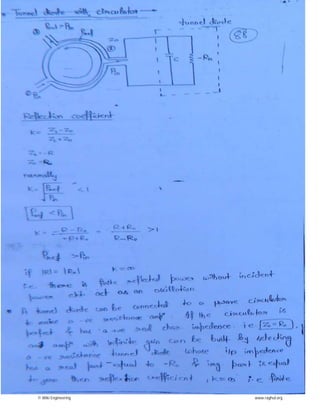 * Tunnel diode with circulator →
tunnel diode
Pout = Pn
Pref
Zo
Pin
C
-Rn
Reflection coefficient
K = ZL - Zo / ZL + Zo
ZL = -R
Zo = Ro
normally
K = √Pref / √Pin < 1
Pref < Pin
K = -R - Ro / -R + Ro = R + Ro / R - Ro > 1
Pref > Pin
if |R| = |Ro| K = ∞
i.e. there is finite reflected power without incident
power ckt act as an oscillation
* A tunnel diode can be connected to a passive circulator
to make a -ve resistance amp. If the circulator is
perfect & has a +ve real char impedence i.e. Zo = Ro
and amp with infinite gain can be built By selecting
a -ve resistance tunnel diode whose i/p impedence
has a real part equal to -Ro & img part is equal
to zero then reflection coefficient, K = ∞ i.e. finite
© BBN Engineering
www.raghul.org